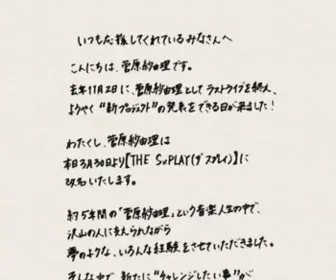 いつも応援してくれているみなさんへ
こんにちは、菅原紗由理です。
去年11月2日に、菅原紗由理としてラストライブを終え、
ようやく“新プロジェクト”の発表をできる日が来ました!
わたくし、菅原紗由理は
本日3月30日より【THE SxPLAY(ザ スプレイ)】に
改名いたします。
約5年間の「菅原紗由理」という音楽人生の中で、
沢山の人に支えられながら
夢のような、いろんな経験をさせていただきました。
そんな中で、新たに“チャレンジしたい事”が